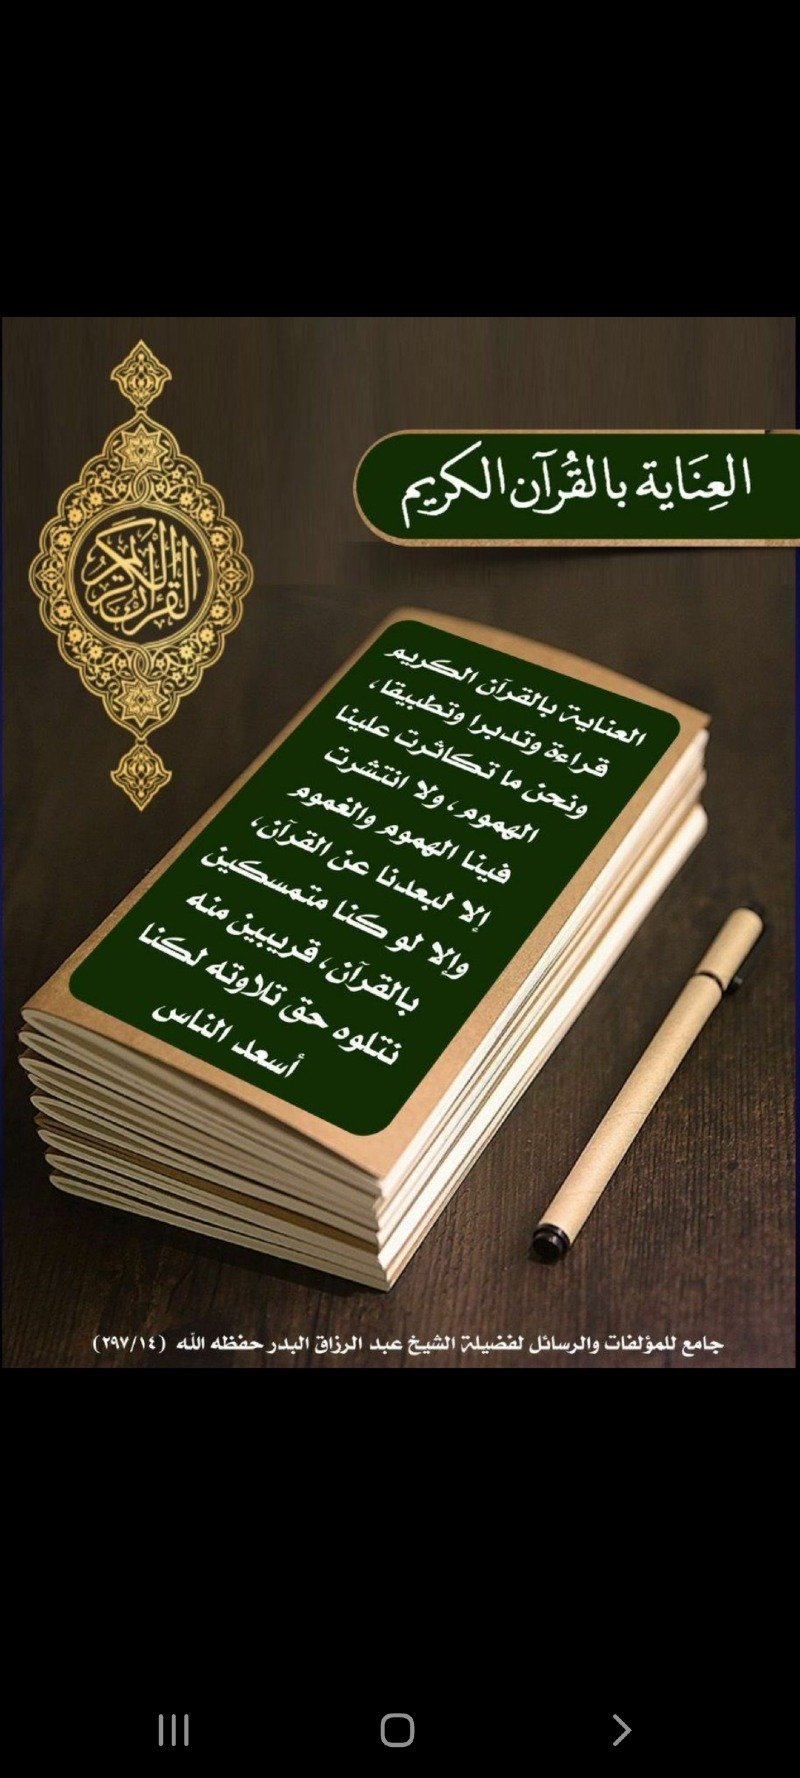 العِنَاية بالقُرآن الكريم
القرآن الكريم
العناية بالقرآن الكريم
قراءة وتدبرا وتطبيقا،
ونحن ما تكاثرت علينا
الهموم، ولا انتشرت
فينا الهموم والغموم
إلا لبعدنا عن القرآن،
وإلا لو كنا متمسكين
بالقرآن، قريبين منه
نتلوه حق تلاوته لكنا
أسعد الناس
جامع للمؤلفات والرسائل لفضيلة الشيخ عبد الرزاق البدر حفظه الله (٢٩٧/١٤)